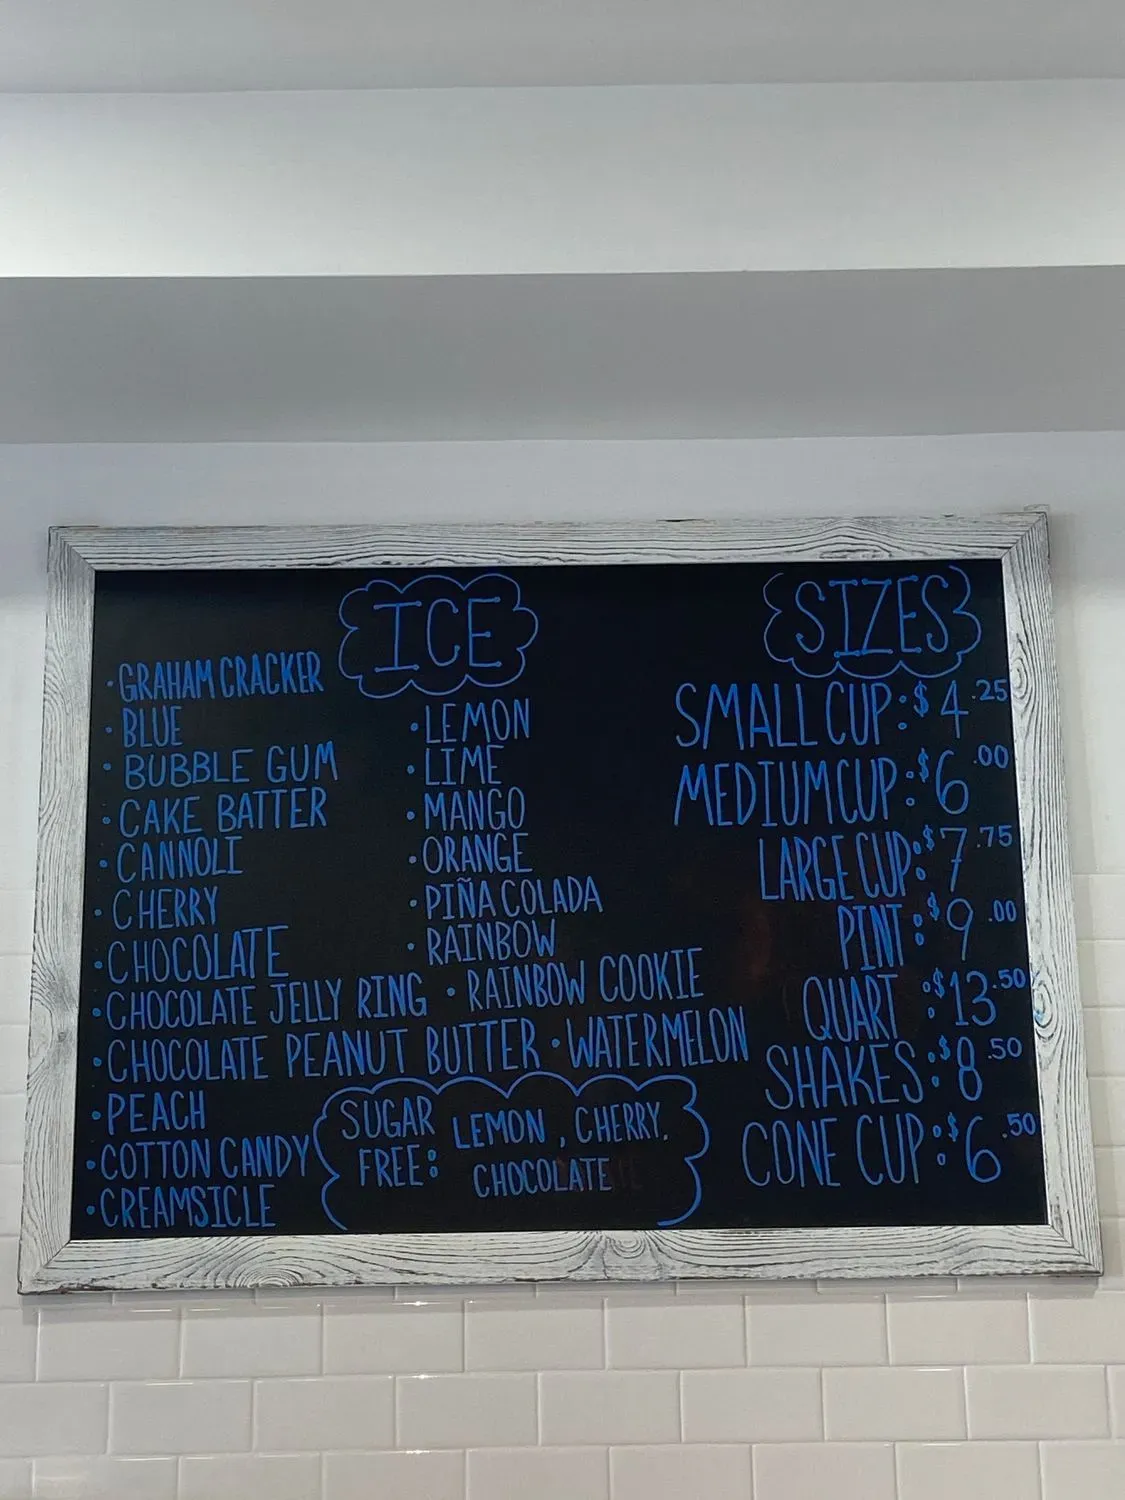 ICE
• GRAHAM CRACKER
• BLUE
• BUBBLE GUM
• CAKE BATTER
• CANNOLI
• CHERRY
• CHOCOLATE
• CHOCOLATE JELLY RING
• CHOCOLATE PEANUT BUTTER
• PEACH
• COTTON CANDY
• CREAMSICLE
• LEMON
• LIME
• MANGO
• ORANGE
• PIÑA COLADA
• RAINBOW
• RAINBOW COOKIE
• WATERMELON
SUGAR FREE: LEMON, CHERRY,
CHOCOLATE
SIZES
SMALL CUP: $4.25
MEDIUM CUP: $6.00
LARGE CUP: $7.75
PINT: $9.00
QUART: $13.50
SHAKES: $8.50
CONE CUP: $6.50